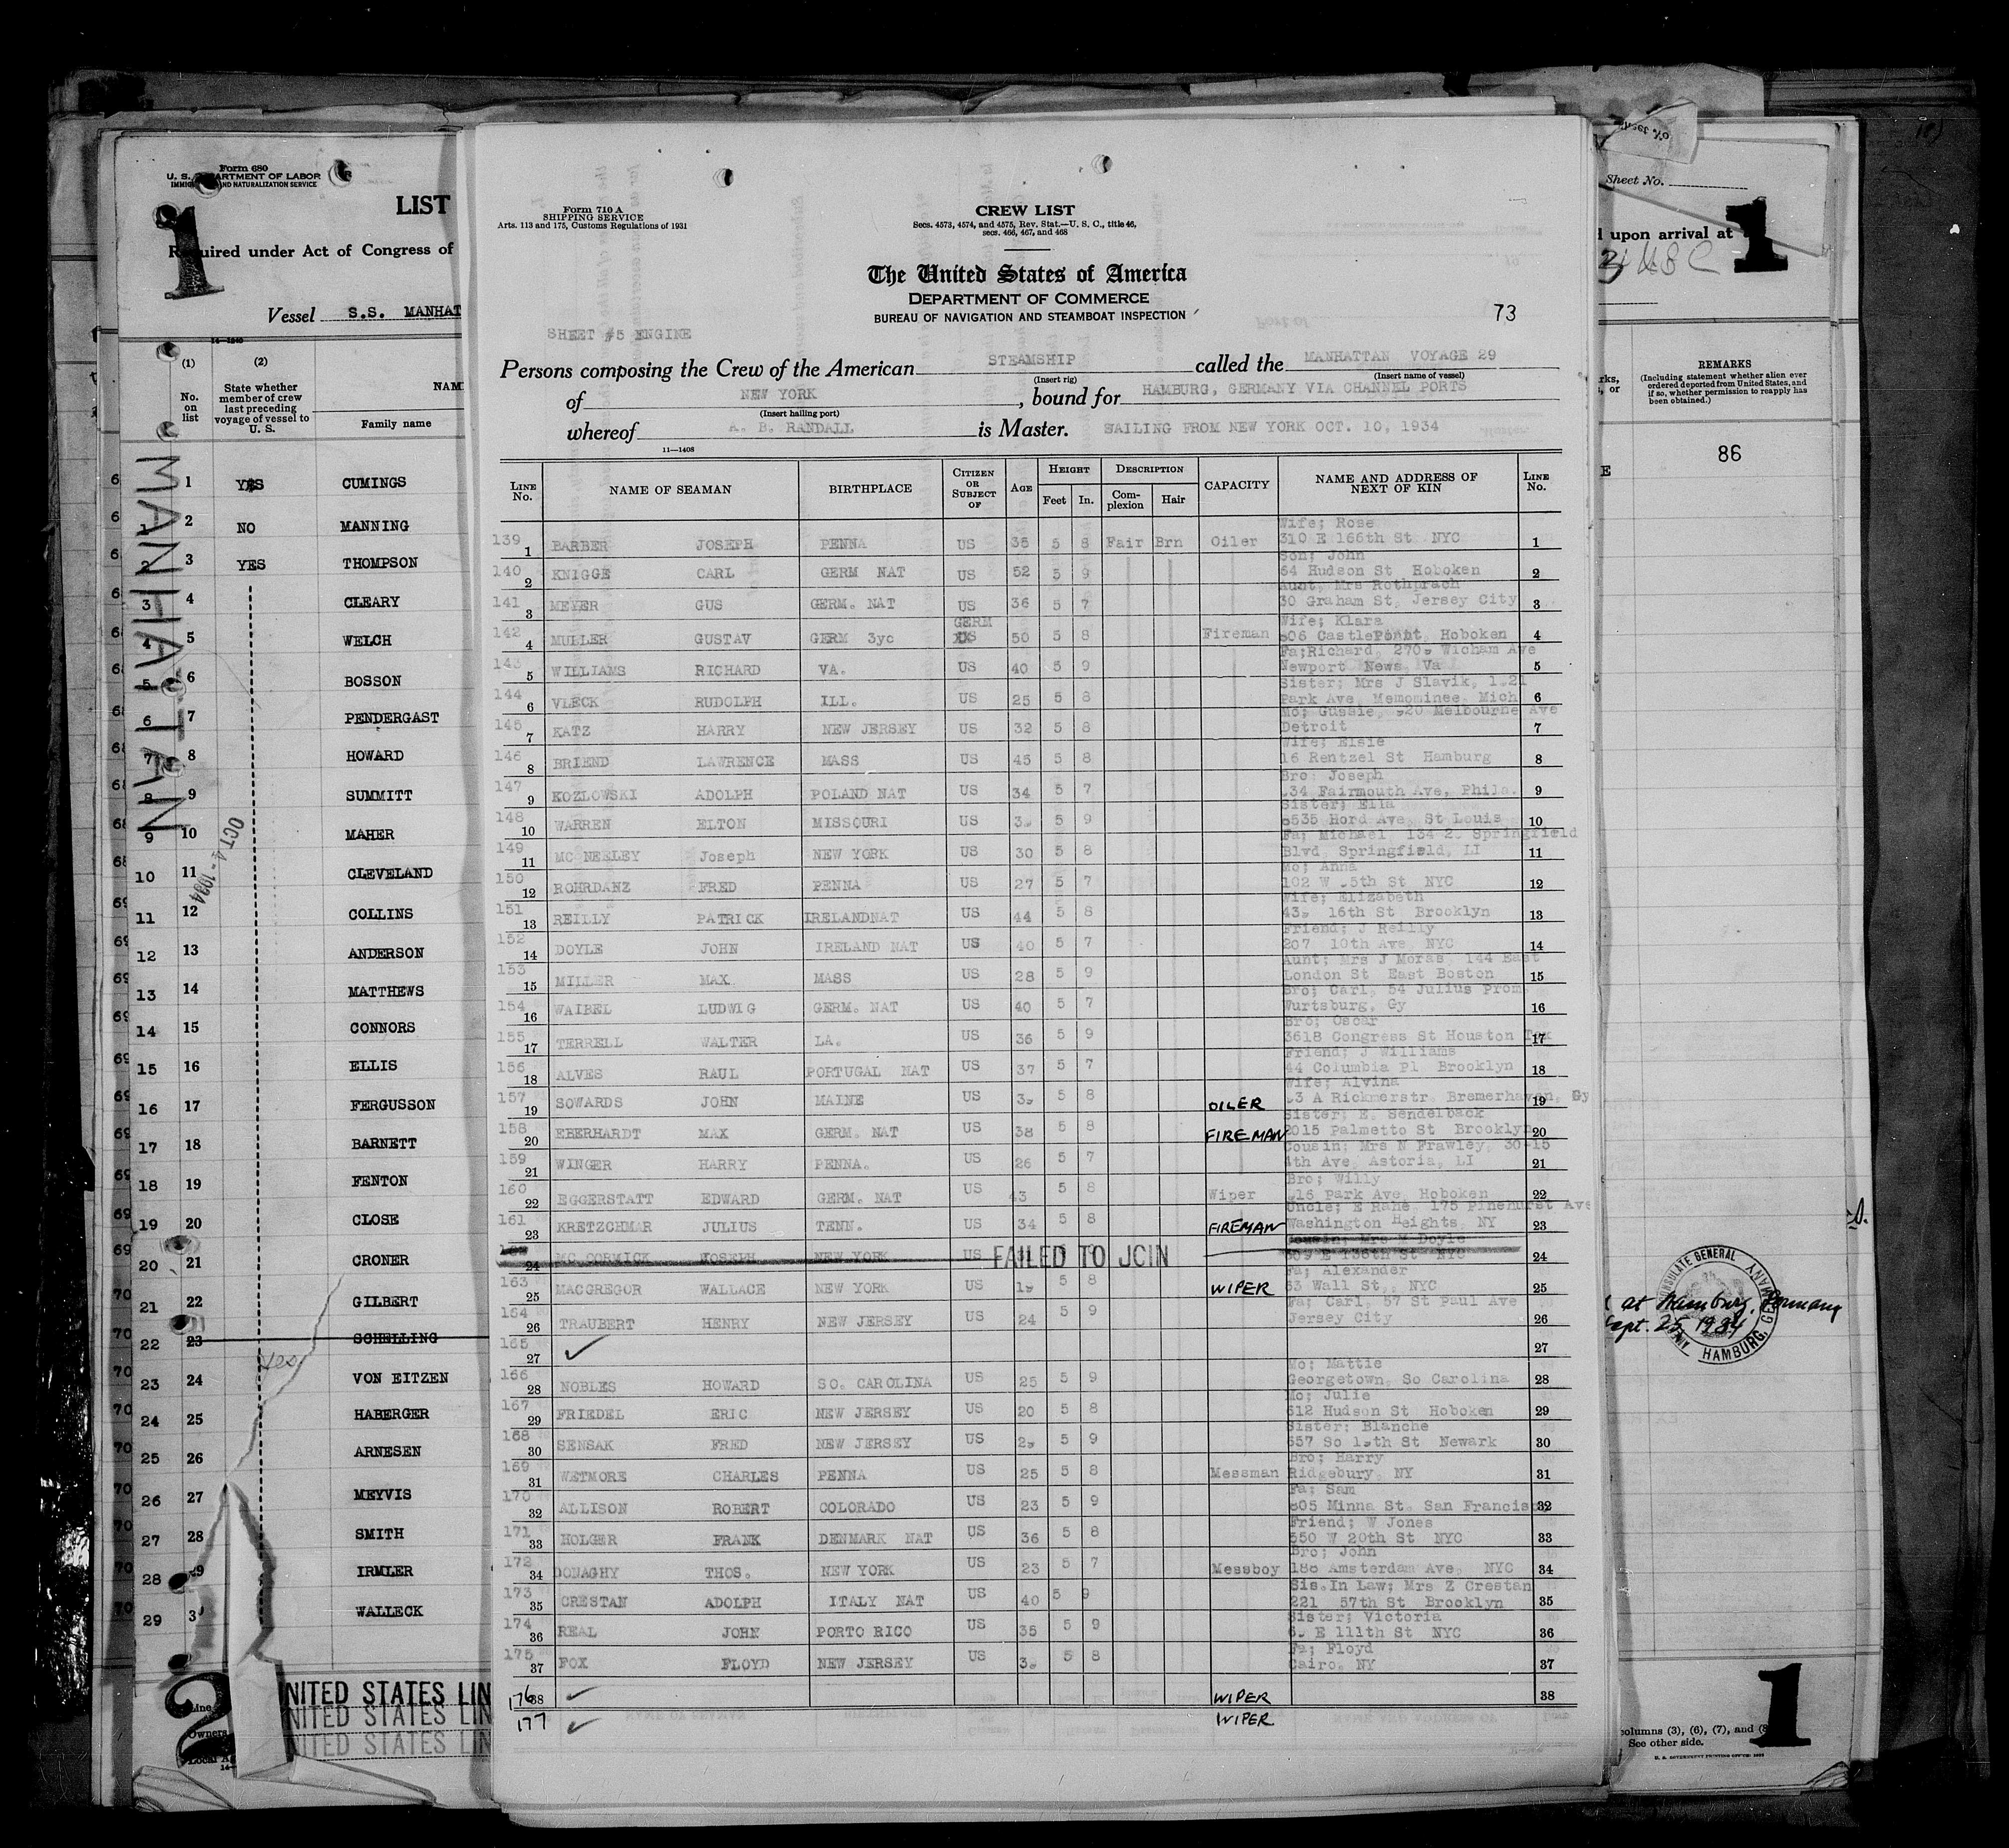 Form 680
U. S. DEPARTMENT OF LABOR
IMMIGRATION AND NATURALIZATION SERVICE
1
LIST
Required under Act of Congress of
Vessel S.S. MANHAT
(1) (2)
No. on list
State whether member of crew last preceding voyage of vessel to U. S.
NAM
Family name
MANHATTAN
OCT 4 - 1934
1 YES CUMINGS
2 NO MANNING
3 YES THOMPSON
4 CLEARY
5 WELCH
6 BOSSON
7 PENDERGAST
8 HOWARD
9 SUMMITT
10 MAHER
11 CLEVELAND
12 COLLINS
13 ANDERSON
14 MATTHEWS
15 CONNORS
16 ELLIS
17 FERGUSSON
18 BARNETT
19 FENTON
20 CLOSE
21 CRONER
22 GILBERT
23 SCHELLING
yes
24 VON EITZEN
25 HABERGER
26 ARNESEN
27 MEYVIS
28 SMITH
29 IRMLER
30 WALLECK
2
NITED STATES LIN
NITED STATES LIN
NITED STATES LIN
Form 710 A
SHIPPING SERVICE
Arts. 113 and 175, Customs Regulations of 1931
CREW LIST
Secs. 4573, 4574, and 4575, Rev. Stat.—U. S. C., title 46,
secs. 466, 467, and 468
The United States of America
DEPARTMENT OF COMMERCE
BUREAU OF NAVIGATION AND STEAMBOAT INSPECTION
73
SHEET #5 ENGINE
Persons composing the Crew of the American STEAMSHIP called the MANHATTAN VOYAGE 29
(Insert rig) (Insert name of vessel)
of NEW YORK, bound for HAMBURG, GERMANY VIA CHANNEL PORTS
(Insert hailing port)
whereof A. B. RANDALL is Master. SAILING FROM NEW YORK OCT. 10, 1934
11—1408
LINE No. NAME OF SEAMAN BIRTHPLACE CITIZEN OR SUBJECT OF AGE HEIGHT Feet In. DESCRIPTION Complexion Hair CAPACITY NAME AND ADDRESS OF NEXT OF KIN LINE No.
Wife; Rose
139 1 BARBER JOSEPH PENNA US 35 5 8 Fair Brn Oiler 310 E 166th St NYC 1
Son; John
140 2 KNIGGE CARL GERM NAT US 52 5 9 64 Hudson St Hoboken 2
Aunt, Mrs Rothprach
141 3 MEYER GUS GERM. NAT US 36 5 7 30 Graham St, Jersey City 3
GERM Wife; Klara
142 4 MULLER GUSTAV GERM 3yc 50 5 8 Fireman 606 CastlePoint, Hoboken 4
Fa;Richard, Wicham Ave
143 5 WILLIAMS RICHARD VA. US 40 5 9 Newport News, Va 5
Sister; Mrs J Slavik,
144 6 VLECK RUDOLPH ILL. US 25 5 8 Park Ave, Memominee, Mich 6
Mo; Gussie, Melbourne Ave
145 7 KATZ HARRY NEW JERSEY US 32 5 8 Detroit 7
Wife; Elsie
146 8 BRIEND LAWRENCE MASS US 45 5 8 16 Rentzel St Hamburg 8
Bro; Joseph
147 9 KOZLOWSKI ADOLPH POLAND NAT US 34 5 7 Fairmouth Ave, Phila. 9
Sister; Ella
148 10 WARREN ELTON MISSOURI US 5 9 Hord Ave, St Louis 10
Fa; Michael, Springfield
149 11 MC NEELEY Joseph NEW YORK US 30 5 8 Blvd, Springfield, LI 11
Mo; Anna
150 12 ROHRDANZ FRED PENNA US 27 5 7 102 W St NYC 12
Wife; Elizabeth
151 13 REILLY PATRICK IRELANDNAT US 44 5 8 16th St Brooklyn 13
Friend; J Reilly
152 14 DOYLE JOHN IRELAND NAT US 40 5 7 207 10th Ave, NYC 14
Aunt; Mrs J Moras, 144 East
153 15 MILLER MAX MASS US 28 5 9 London St East Boston 15
Bro; Carl, 54 Julius Prom
154 16 WAIBEL LUDWIG GERM. NAT US 40 5 7 Wurtsburg, Gy 16
Bro; Oscar
155 17 TERRELL WALTER LA. US 36 5 9 3618 Congress St Houston Tex 17
Friend; J Williams
156 18 ALVES RAUL PORTUGAL NAT US 37 5 7 44 Columbia Pl Brooklyn 18
Wife; Alvina
157 19 SOWARDS JOHN MAINE US 5 8 OILER A Rickmerstr. Bremerhaven, Gy 19
Sister; E. Sendelback
158 20 EBERHARDT MAX GERM. NAT US 38 5 8 FIREMAN 2015 Palmetto St Brooklyn 20
Cousin; Mrs N Frawley, 30-15
159 21 WINGER HARRY PENNA. US 26 5 7 4th Ave, Astoria, LI 21
Bro; Willy
160 22 EGGERSTATT EDWARD GERM. NAT US 43 5 8 Wiper Park Ave, Hoboken 22
Uncle; E Rahe, 175 Pinehurst Ave
161 23 KRETZCHMAR JULIUS TENN. US 34 5 8 FIREMAN Washington Heights, NY 23
Cousin; Mrs M Doyle
24 MC CORMICK JOSEPH NEW YORK US FAILED TO JOIN E 136th St NYC 24
Fa; Alexander
163 25 MACGREGOR WALLACE NEW YORK US 5 8 WIPER 63 Wall St,, NYC 25
Fa; Carl, 57 St Paul Ave
164 26 TRAUBERT HENRY NEW JERSEY US 24 5 9 Jersey City 26
165 27 ✓ 27
Mo; Mattie
166 28 NOBLES HOWARD SO. CAROLINA US 25 5 9 Georgetown, So Carolina 28
Mo; Julie
167 29 FRIEDEL ERIC NEW JERSEY US 20 5 8 612 Hudson St Hoboken 29
Sister; Blanche
168 30 SENSAK FRED NEW JERSEY US 5 9 557 So St Newark 30
Bro; Harry
169 31 WETMORE CHARLES PENNA US 25 5 8 Messman Ridgebury, NY 31
Fa; Sam
170 32 ALLISON ROBERT COLORADO US 23 5 9 Minna St, San Francis 32
Friend; W Jones
171 33 HOLGER FRANK DENMARK NAT US 36 5 8 550 W 20th St NYC 33
Bro; John
172 34 DONAGHY THOS. NEW YORK US 23 5 7 Messboy Amsterdam Ave, NYC 34
Sis.In Law; Mrs Z Crestan
173 35 CRESTAN ADOLPH ITALY NAT US 40 5 9 221 57th St Brooklyn 35
Sister; Victoria
174 36 REAL JOHN PORTO RICO US 35 5 9 E 111th St NYC 36
Fa; Floyd
175 37 FOX FLOYD NEW JERSEY US 5 8 Cairo, NY 37
176 38 ✓ WIPER 38
177 ✓ WIPER
Sheet No.
1
upon arrival at
REMARKS
(Including statement whether alien ever ordered deported from United States, and if so, whether permission to reapply has been obtained.)
86
at Hamburg, Germany
Sept. 25, 1934
HAMBURG, GERMANY
columns (3), (6), (7), and (8
See other side.
U. S. GOVERNMENT PRINTING OFFICE
1